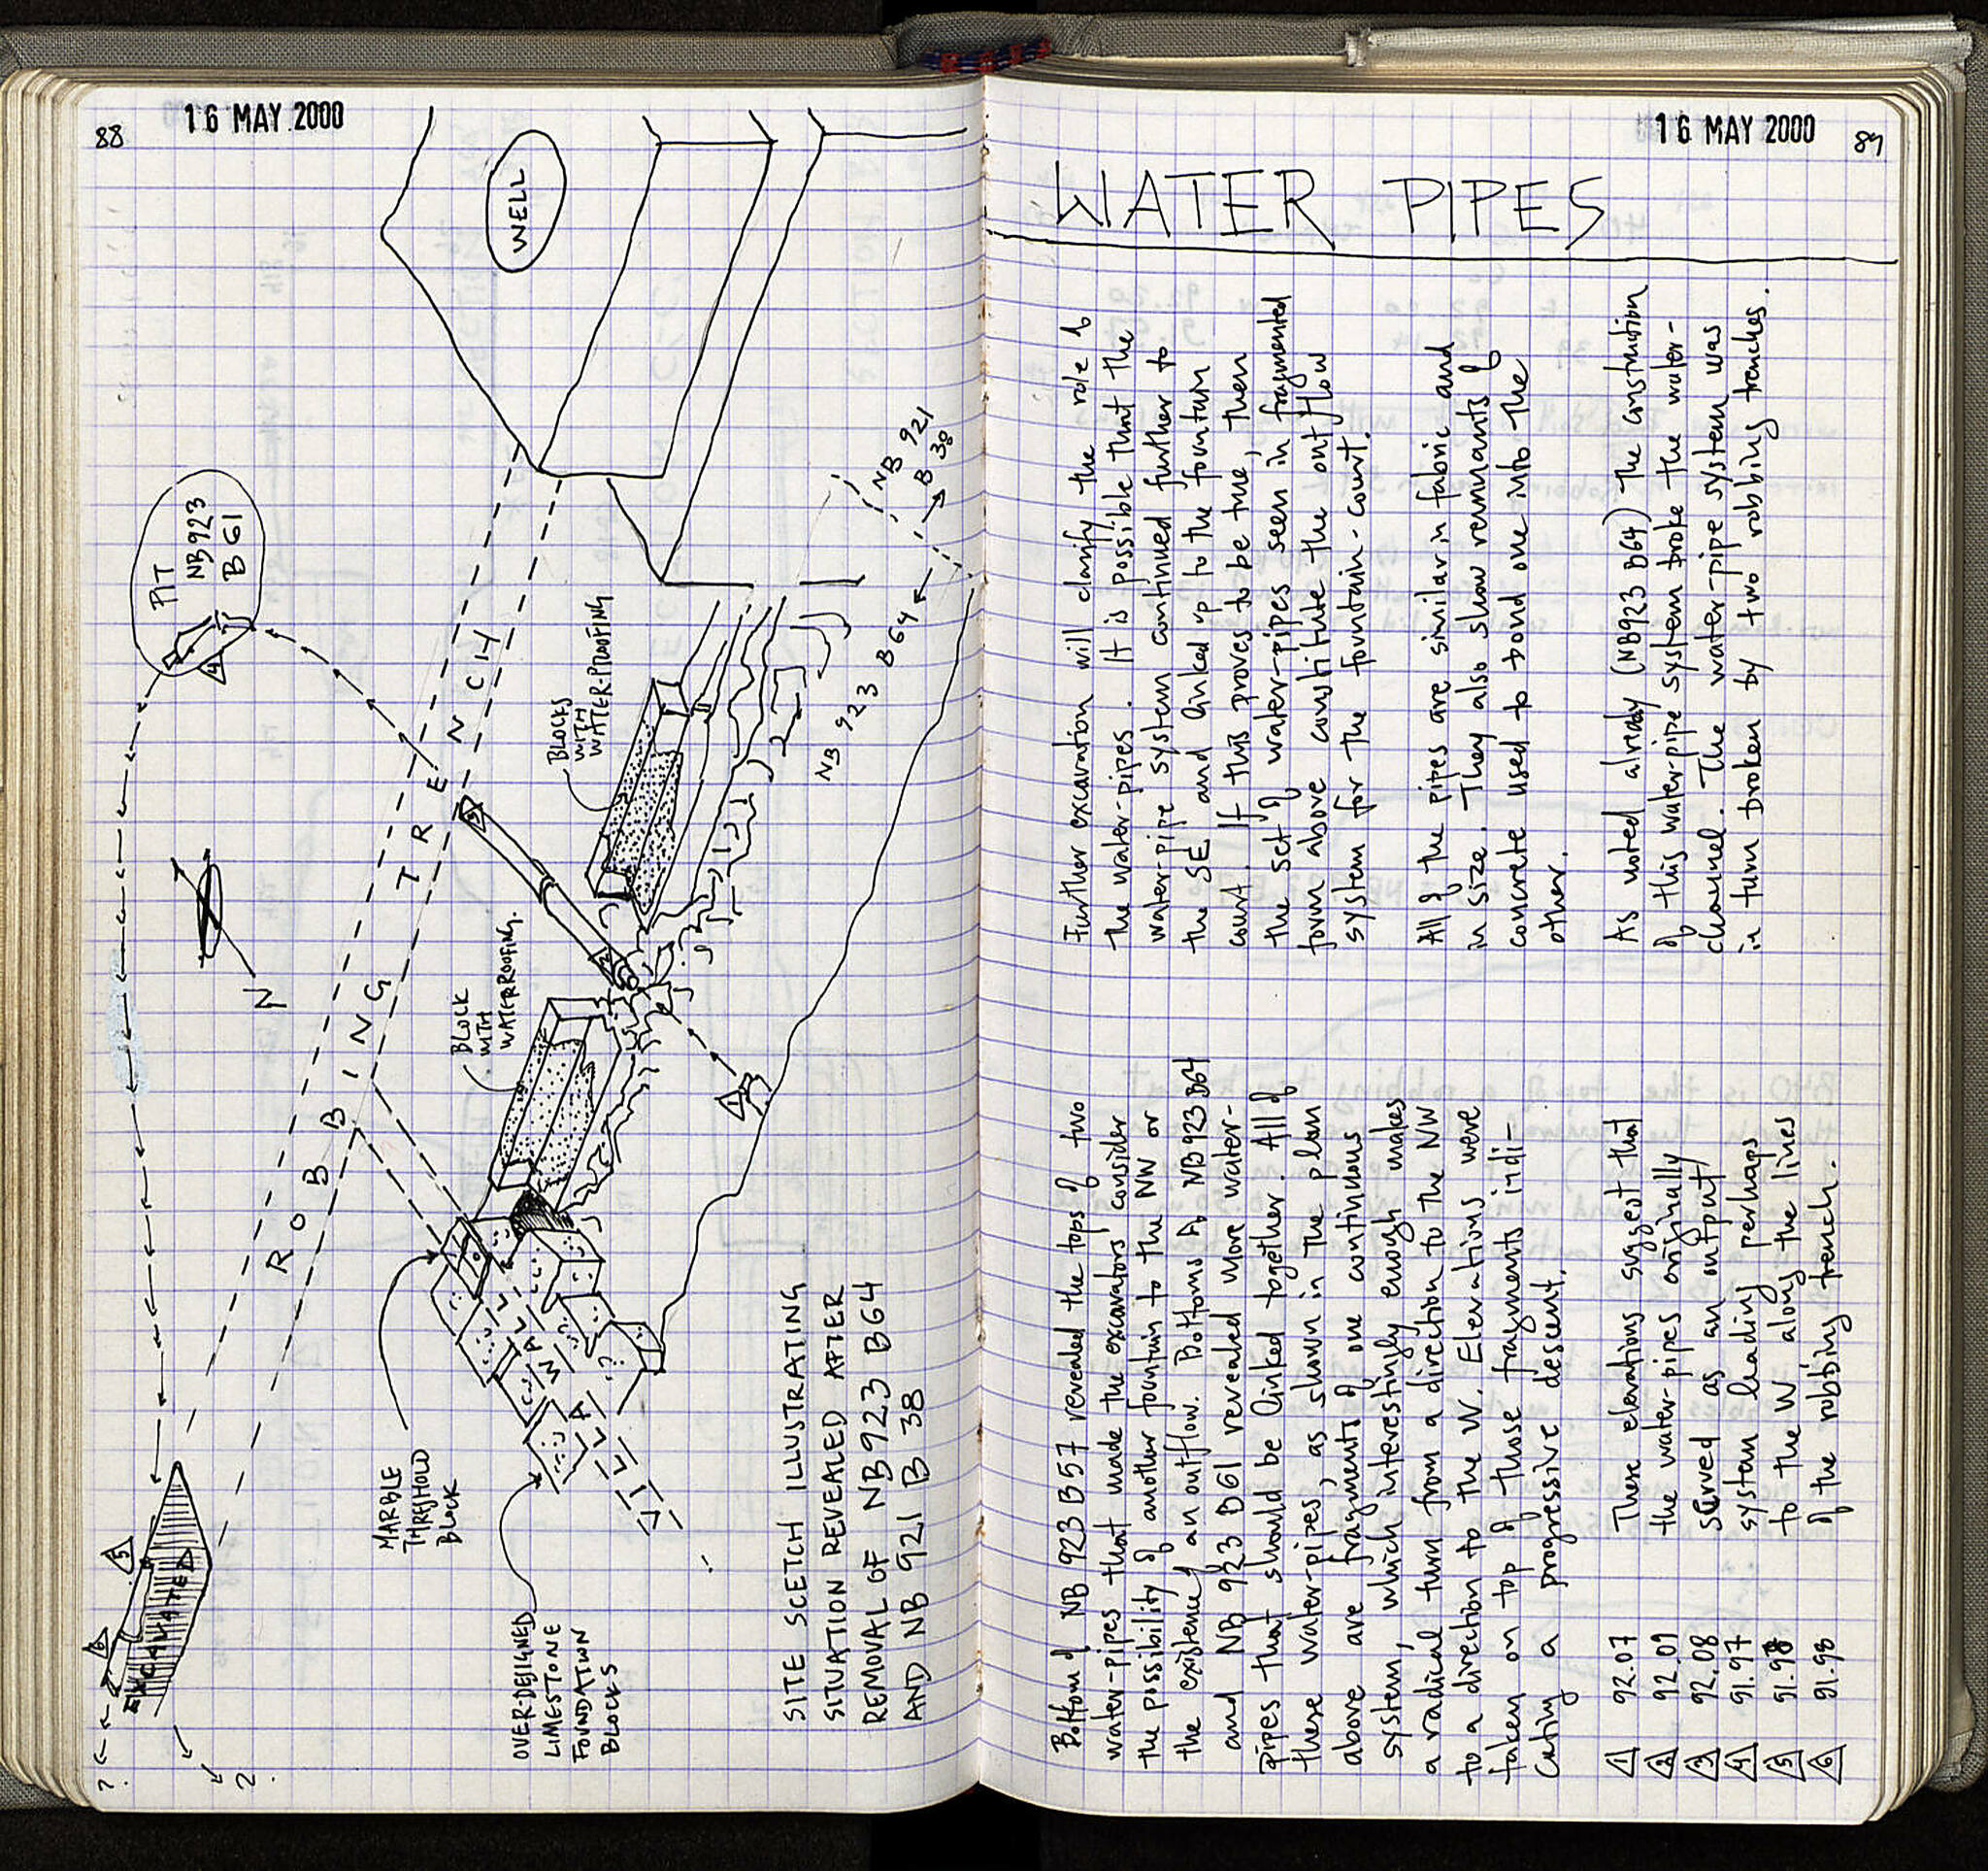 88
16 MAY 2000
WELL
PIT
NB923
B61
4
N
ROBBING TRENCH
BLOCKS
WITH
WATER-PROOFING
BLOCK
WITH
WATERROOFING.
NB 921
B 38
NB 923 B64
3
2
1
WALL
WALL
?
MARBLE
THRESHOLD
BLOCK
OVER-DESIGNED
LIMESTONE
FOUNDATION
BLOCKS
5
6
EXCAVATED
?
?
SITE SCETCH ILLUSTRATING
SITUATION REVEALED AFTER
REMOVAL OF NB923 B64
AND NB 921 B 38
16 MAY 2000
89
WATER PIPES
Bottom of NB 923 B57 revealed the tops of two
water-pipes that made the excavators consider
the possibility of another fountain to the NW or
the existence of an outflow. Bottoms of NB923 B64
and NB 923 B61 revealed more water-
pipes that should be linked together. All of
these water-pipes, as shown in the plan
above are fragments of one continuous
system, which interestingly enough makes
a radical turn from a direction to the NW
to a direction to the W. Elevations were
taken on top of those fragments indi-
cating a progressive descent.
1 92.07
2 92.09
3 92.08
4 91.97
5 91.98
6 91.98
These elevations suggest that
the water-pipes originally
served as an output
system leading perhaps
to the W along the lines
of the robbing trench.
Further excavation will clarify the role of
the water-pipes. It is possible that the
water-pipe system continued further to
the SE and linked up to the fountain
court. If this proves to be true, then
the set of water-pipes seen in fragmented
form above constitute the outflow
system for the fountain-court.
All of the pipes are similar in fabric and
in size. They also show remnants of
concrete used to bond one into the
other.
As noted already (NB923 B64) the construction
of this water-pipe system broke the water-
channel. The water-pipe system was
in turn broken by two robbing trenches.